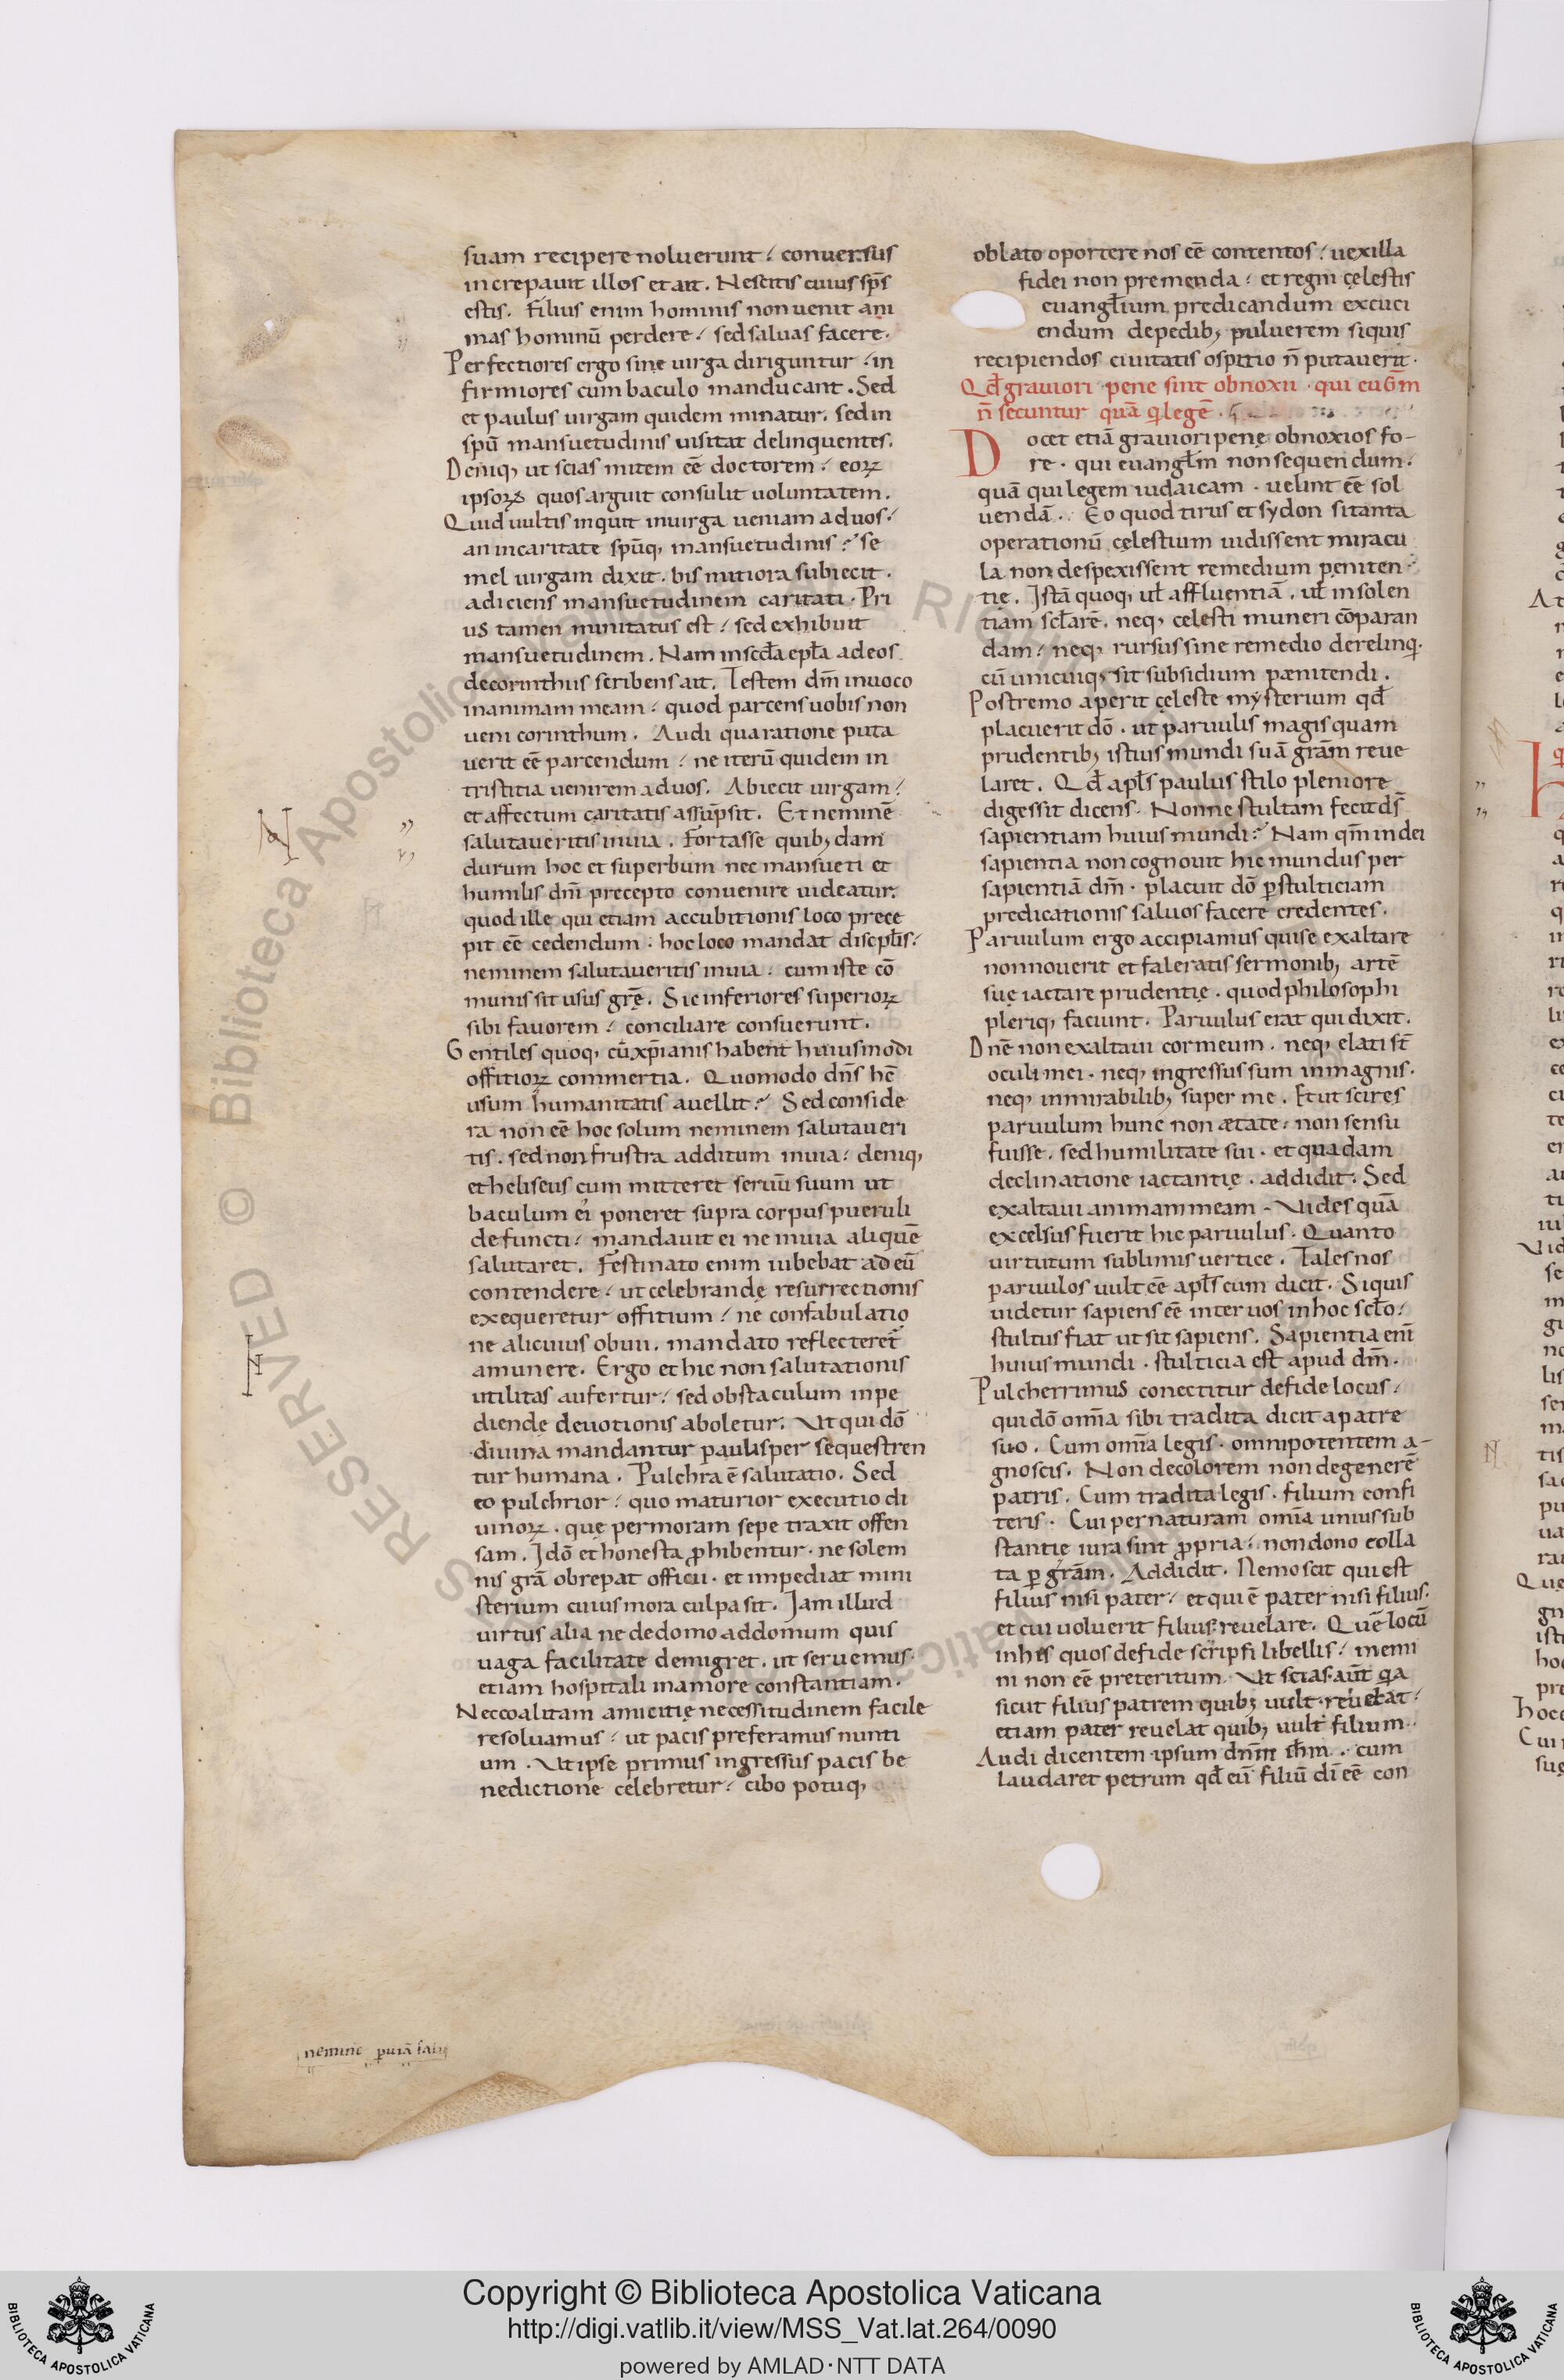 suam recipere noluerunt / conuersus
increpauit illos et ait. Nescitis cuius sp̄s
estis. Filius enim hominis non uenit ani
mas hominū perdere / sed saluas facere.
Perfectiores ergo sine uirga diriguntur / in
firmiores cum baculo manducant. Sed
et paulus uirgam quidem minatur. sed in
spū mansuetudinis uisitat delinquentes.
Deniq; ut scias mitem eē doctorem / eoꝝ
ipsoꝝ quos arguit consulit uoluntatem.
Quid uultis inquit in uirga ueniam ad uos /
an in caritate spūq; mansuetudinis? Se
mel uirgam dixit. bis mitiora subiecit.
adiciens mansuetudinem caritati. Pri
us tamen minitatus est / sed exhibuit
mansuetudinem. Nam in scđa epła ad eos
de corinthiis scribens ait. Testem dm̄ inuoco
in animam meam / quod parcens uobis non
ueni corinthum. Audi qua ratione puta
uerit eē parcendum / ne iterū quidem in
tristitia uenirem ad uos. Abiecit uirgam /
et affectum caritatis assūpsit. Et neminē
salutaueritis in uia. Fortasse quib; dam
durum hoc et superbum nec mansueti et
humilis dn̄i precepto conuenire uideatur.
quod ille qui etiam accubitionis loco prece
pit eē cedendum : hoc loco mandat discipłis /
neminem salutaueritis in uia. cum iste cō
munis sit usus grę̄. Sic inferiores superioꝝ
sibi fauorem / conciliare consuerunt.
Gentiles quoq; cū xp̄ianis habent huiusmodi
offitioꝝ commertia. Quomodo dn̄s hc̄
usum humanitatis auellit? Sed conside
ra non eē hoc solum neminem salutaueri
tis. sed non frustra additum in uia / deniq;
et heliseus cum mitteret seruū suum ut
baculum ei poneret supra corpus pueruli
defuncti / mandauit ei ne in uia aliquē
salutaret. Festinato enim iubebat ad eū
contendere / ut celebrandę resurrectionis
exequeretur offitium / ne confabulatio
ne alicuius obuii. mandato reflecteret̄
a munere. Ergo et hic non salutationis
utilitas aufertur / sed obstaculum inpe
diendę deuotionis aboletur. Ut qui dō
diuina mandantur paulisper sequestren
tur humana. Pulchra ē salutatio. Sed
eo pulchrior / quo maturior executio di
uinoꝝ. quę per moram sepe traxit offen
sam. Idō et honesta ꝓhibentur. ne solem
nis grā obrepat officii. et impediat mini
sterium cuius mora culpa sit. Iam illud
uirtus alia ne de domo ad domum quis
uaga facilitate demigret. ut seruemus
etiam hospitali in amore constantiam.
Nec coalitam amicitię necessitudinem facile
resoluamus / ut pacis preferamus nunti
um. Ut ipse primus ingressus pacis be
nedictione celebretur / cibo potuq;
nemine p uiā salu
oblato oportere nos eē contentos / uexilla
fidei non premenda / et regni cęlestis
euangłium predicandum excuci
endum de pedib; puluerem si quis
recipiendos ciuitatis ospitio n̄ putauerit.
Qđ grauiori pene sint obnoxii. qui euḠm
n̄ secuntur quā q̄ legē.
Docet etiā grauiori penę obnoxios fo-
re. qui euangłm non sequendum.
quā qui legem iudaicam. uelint eē sol
uendā. Eo quod tirus et sydon si tanta
operationū cęlestium uidissent miracu
la non despexissent remedium peniten
tię. Istā quoq; uł affluentiā. uł insolen
tiam scłarē. neq; celesti muneri cōparan
dam / neq; rursus sine remedio derelinq̄.
cū unicuiq; sit subsidium pænitendi.
Postremo aperit cęleste mysterium qđ
placuerit dō. ut paruulis magis quam
prudentib; istius mundi suā grām reue
laret. Qđ apłs paulus stilo pleniore
digessit dicens. Nonne stultam fecit ds̄
sapientiam huius mundi? Nam qm̄ in dei
sapientia non cognouit hic mundus per
sapientiā dm̄. placuit dō ꝑ stulticiam
predicationis saluos facere credentes.
Paruulum ergo accipiamus qui se exaltare
non nouerit et faleratis sermonib; artē
suę iactare prudentię. quod philosophi
pleriq; faciunt. Paruulus erat qui dixit.
Dnē non exaltaui cor meum. neq; elati st̄
oculi mei. neq; ingressus sum in magnis.
neq; in mirabilib; super me. Et ut scires
paruulum hunc non ætate / non sensu
fuisse. sed humilitate sui. et quadam
declinatione iactantię. addidit. Sed
exaltaui animam meam. Uides quā
excelsus fuerit hic paruulus. Quanto
uirtutum sublimis uertice. Tales nos
paruulos uult eē apłs cum dicit. Si quis
uidetur sapiens eē inter uos in hoc scło /
stultus fiat ut sit sapiens. Sapientia enī
huius mundi. stulticia est apud dm̄.
Pulcherrimus conectitur de fide locus /
qui dō om̄ia sibi tradita dicit a patre
suo. Cum om̄ia legis. omnipotentem a-
gnoscis. Non decolorem non degenerē
patris. Cum tradita legis. filium confi
teris. Cui per naturam om̄ia unius sub
stantię iura sint ꝓpria / non dono colla
ta ꝑ grām. Addidit. Nemo scit qui est
filius nisi pater / et qui ē pater nisi filius.
et cui uoluerit filius reuelare. Quē locū
in his quos de fide scripsi libellis / memi
ni non eē preteritum. Ut scias aut̄ q̄a
sicut filius patrem quib; uult reuelat /
etiam pater reuelat quib; uult filium.
Audi dicentem ipsum dnm̄ ih̄m. cum
laudaret petrum qđ eū filiū dī eē con
Copyright © Biblioteca Apostolica Vaticana
http://digi.vatlib.it/view/MSS_Vat.lat.264/0090
powered by AMLAD·NTT DATA
BIBLIOTECA APOSTOLICA VATICANA
BIBLIOTECA APOSTOLICA VATICANA